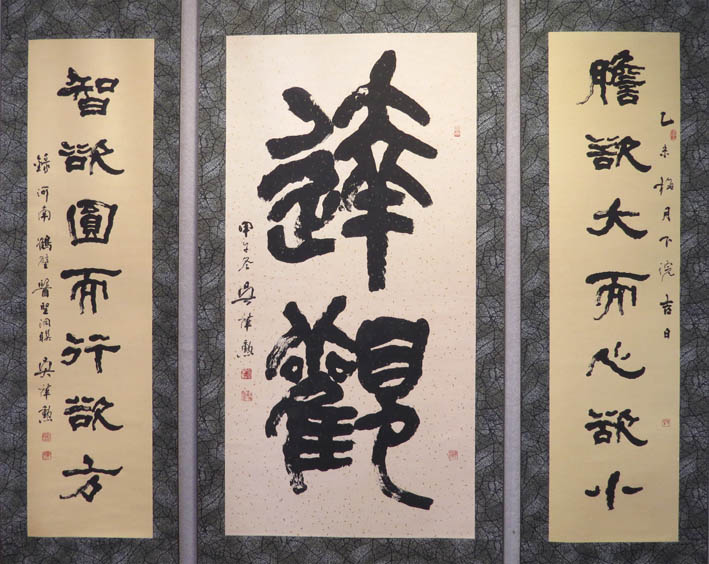 膽欲大而心欲小
乙未梅月下浣吉日
達觀
甲午冬 吳勲
智欲圓而行欲方
錄河南鶴壁醫聖洞聯 吳勲